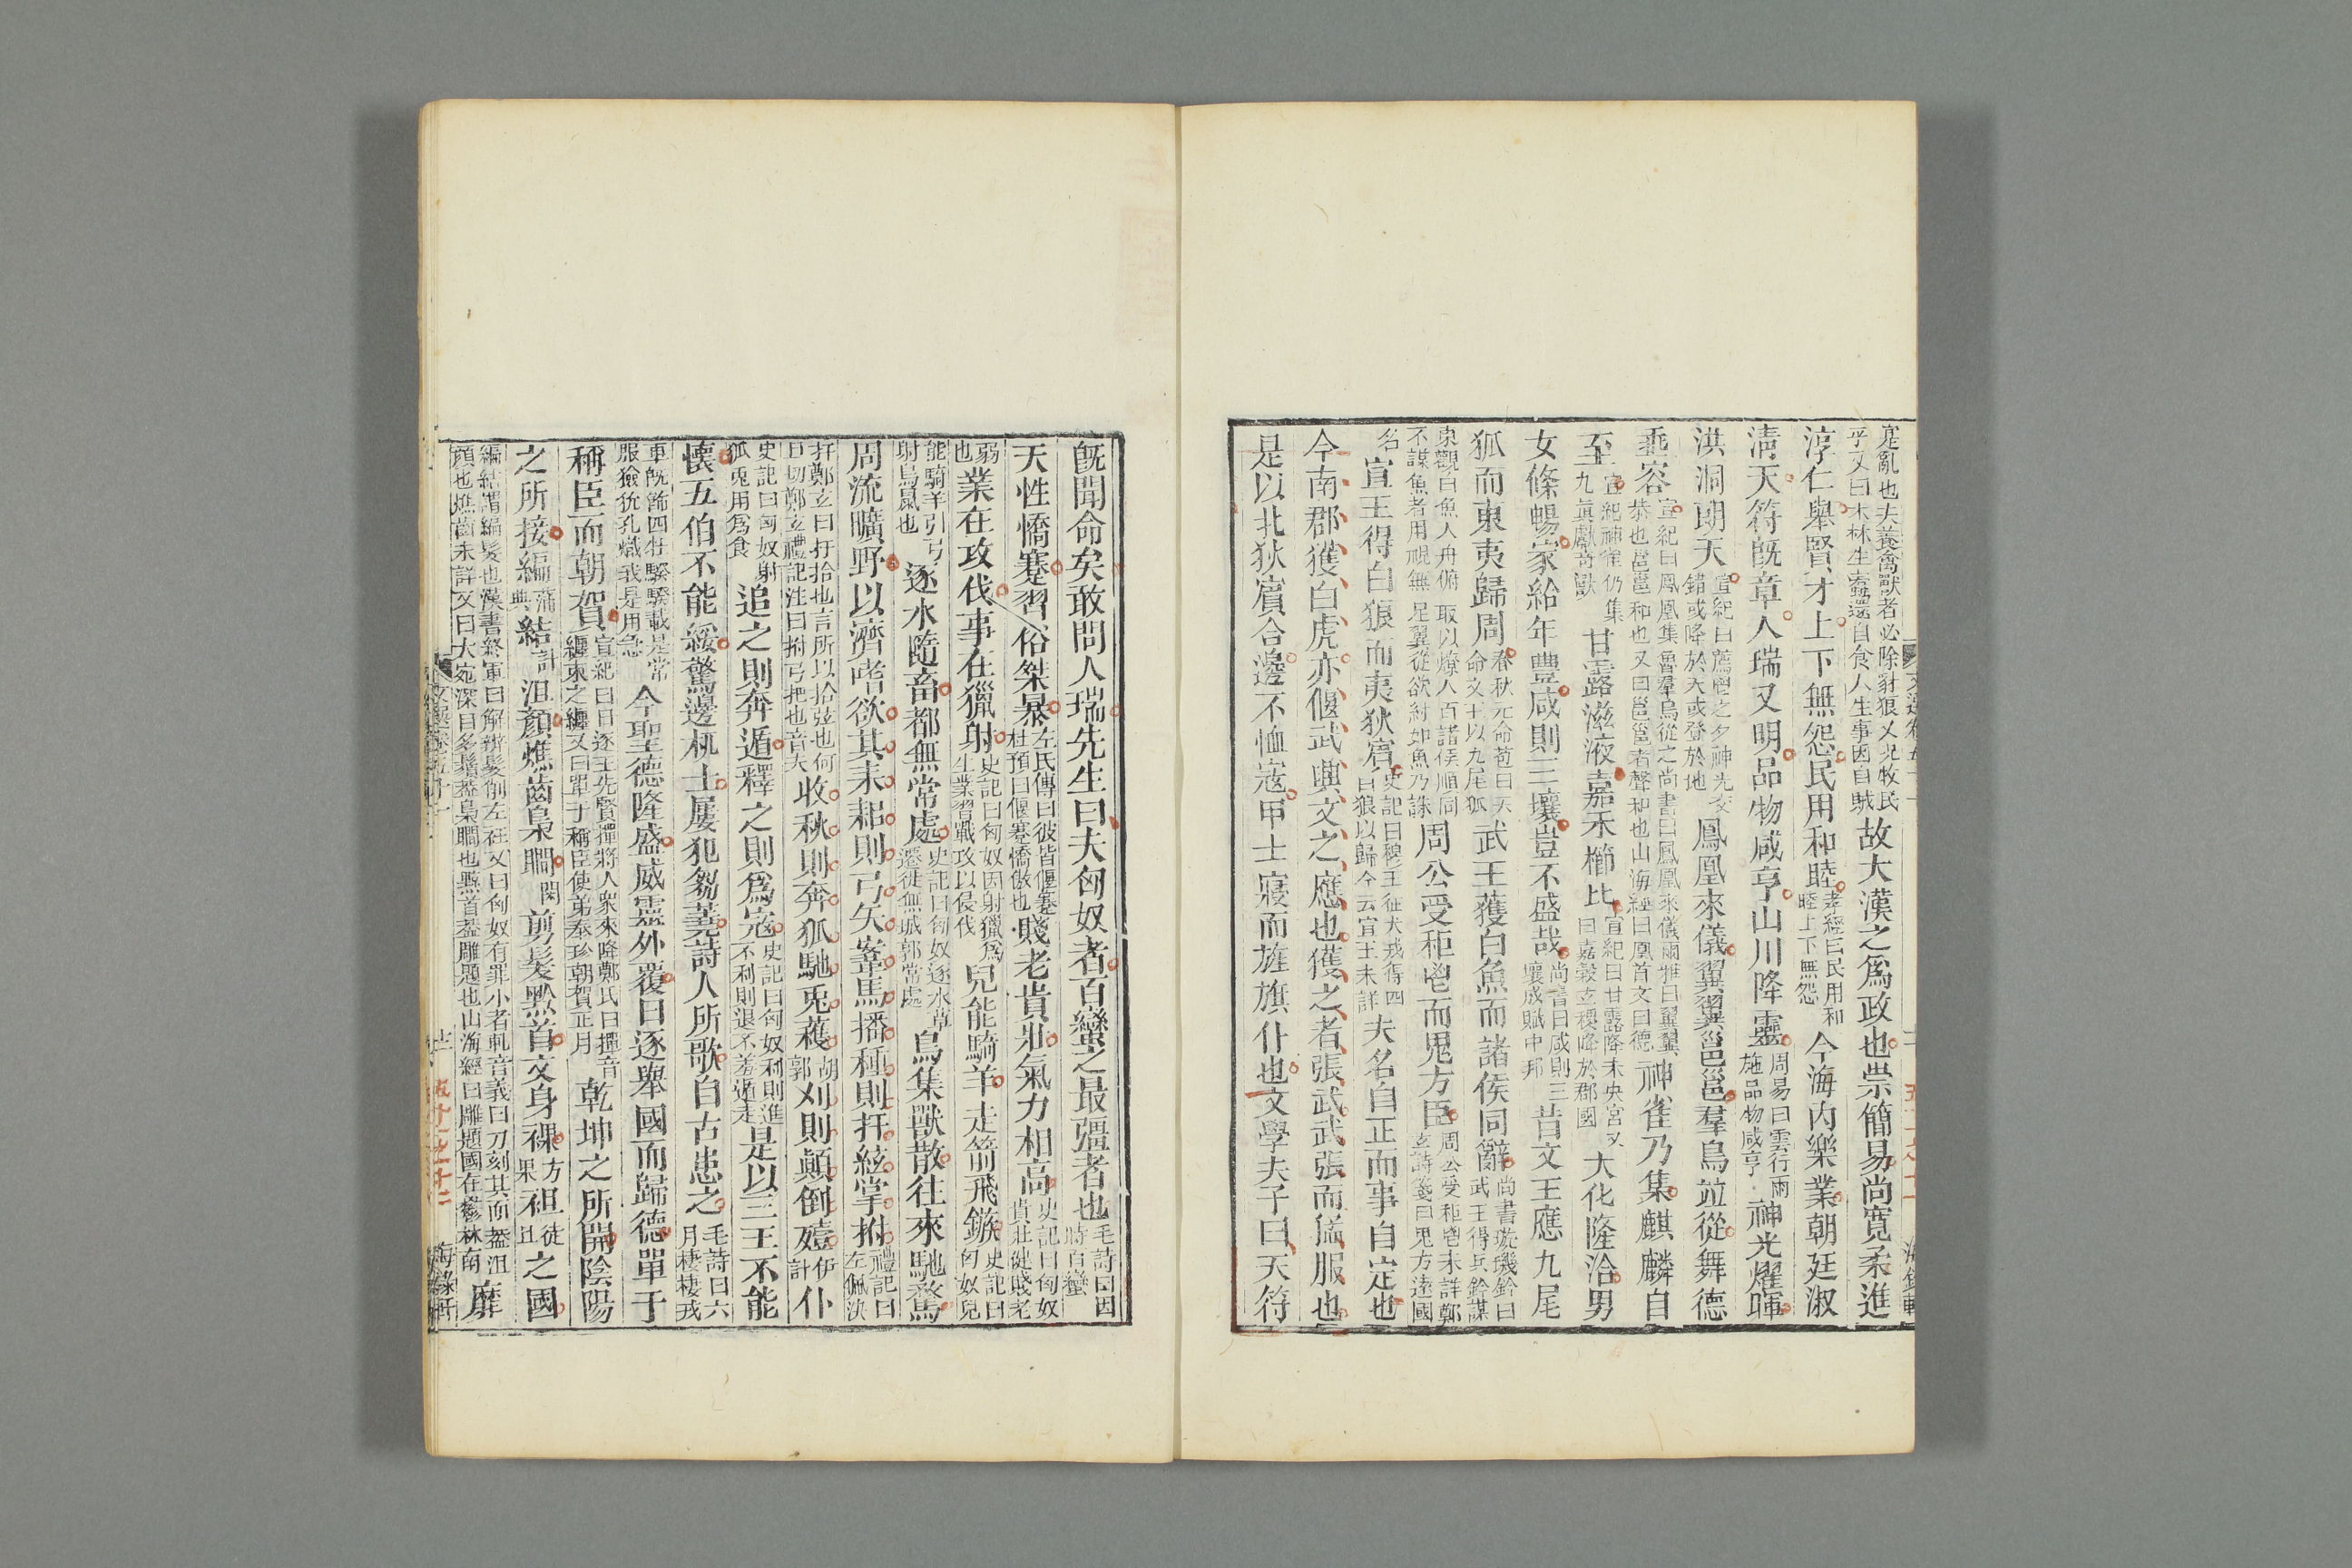 寔亂也夫養禽獸者必除豺狼又況牧民
乎又曰木林生蠧還自食人生事因自賊故大漢之爲政也崇簡易尚寛柔進
淳仁舉賢才上下無怨民用和睦孝經曰民用和睦上下無怨今海内樂業朝廷淑
清天符既章人瑞又明品物咸亨山川降靈周易曰雲行雨施品物咸亨神光燿暉
洪洞朗天宣紀曰薦鬯之夕神光交錯或降於天或登於地鳳凰來儀翼翼邕邕羣鳥並從舞德
垂容宣紀曰鳳凰集魯羣鳥從之尚書曰鳳凰來儀爾雅曰翼翼恭也邕邕和也又曰邕邕者聲和也山海經曰鳳首文曰德神雀乃集麒麟自
至宣紀神雀仍集九眞獻奇獸甘露滋液嘉禾櫛比宣紀曰甘露降未央宮又曰嘉穀玄稷降於郡國大化隆洽男
女條暢家給年豐咸則三壤豈不盛哉尚書曰咸則三壤成賦中邦昔文王應九尾
狐而東夷歸周春秋元命苞曰天命文王以九尾狐武王獲白魚而諸侯同辭尚書琁璣鈐曰武王得兵鈐謀
東觀白魚入舟俯取以燎人百諸侯順同不謀魚者用視無足翼從欲紂如魚乃誅周公受秬鬯而鬼方臣周公受秬鬯未詳鄭玄詩箋曰鬼方遠國
名宣王得白狼而夷狄賔史記曰穆王征犬戎得四白狼以歸今云宣王未詳夫名自正而事自定也
今南郡獲白虎亦偃武興文之應也獲之者張武武張而猛服也
是以北狄賔合邊不恤寇甲士寢而旌旗仆也文學夫子曰天符
既聞命矣敢問人瑞先生曰夫匈奴者百蠻之最彊者也毛詩曰因時百蠻
天性憍蹇習俗桀暴左氏傳曰彼皆偃蹇杜預曰偃蹇憍傲也賤老貴壯氣力相高史記曰匈奴貴壯健賤老
弱也業在攻伐事在獵射史記曰匈奴因射獵爲生業習戰攻以侵伐兒能騎羊走箭飛鏃史記曰匈奴兒
能騎羊引弓射鳥鼠也逐水隨畜都無常處史記曰匈奴逐水草遷徙無城郭常處鳥集獸散往來馳騖
周流曠野以濟嗜欲其耒耜則弓矢鞌馬播種則扞絃掌拊禮記曰左佩決
扞鄭玄曰扞拾也言所以拾弦也何曰切鄭玄禮記注曰拊弓把也音夫收秋則奔狐馳兎穫胡郭刈則顛倒殪伊計仆
史記曰匈奴射狐兎用爲食追之則奔遁釋之則爲寇史記曰匈奴利則進不利則退不羞遁走是以三王不能
懷五伯不能綏驚邊扤士屢犯芻蕘詩人所歌自古患之毛詩曰六月棲棲戎
車既飭四牡騤騤載是常服獫狁孔熾我是用急今聖德隆盛威靈外覆日逐舉國而歸德單于
稱臣而朝賀宣紀曰日逐王先賢撣將人衆來降鄭氏曰撣音纏束之纏又曰單于稱臣使弟奉珍朝賀正月乾坤之所開陰陽
之所接編蒲典結計沮顏燋齒梟瞯閑剪髮黥首文身裸方果袒徒旦之國
編結謂編髮也漢書終軍曰解辮髮削左衽又曰匈奴有罪小者軋音義曰刀刻其面葢沮
顏也燋齒未詳又曰大宛深目多鬚葢梟瞯也黥首葢雕題也山海經曰雕題國在鬱林南靡